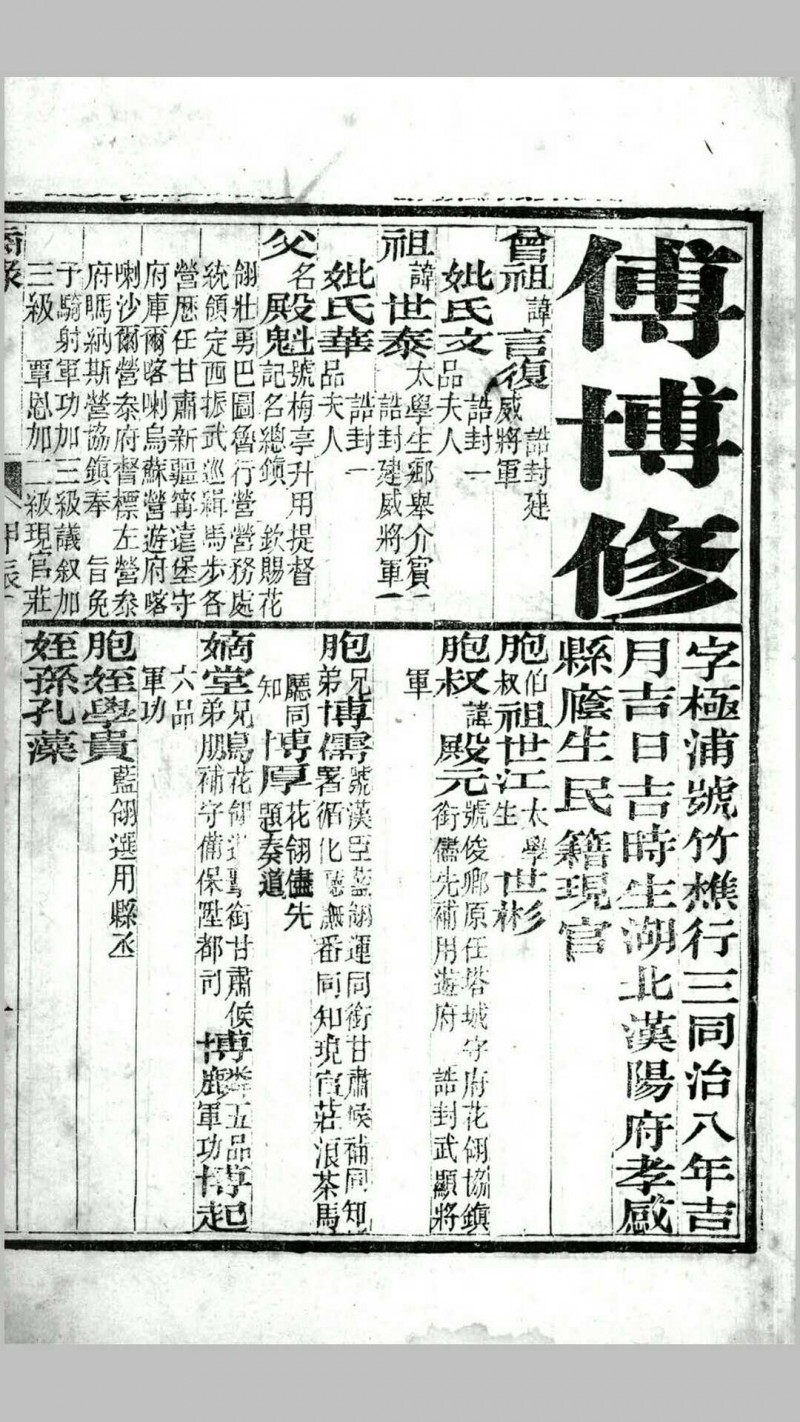 傅博修
曾祖諱言復 誥封建
威將軍
妣氏文 誥封一
品夫人
祖諱世泰太學生鄉舉介賓
誥封建威將軍
妣氏華 誥封一
品夫人
父名殿魁號梅亭升用提督
記名總鎮 欽賜花
翎壯勇巴圖魯行營營務處
統領定西振武巡緝馬步各
營歷任甘肅新疆甯遠堡守
府庫爾喀喇烏蘇營遊府喀
喇沙爾營叅府督標左營叅
府瑪納斯營協鎮奉 旨免
予騎射軍功加三級議叙加
三級 覃恩加二級現官莊
字極浦號竹樵行三同治八年吉
月吉日吉時生湖北漢陽府孝感
縣廕生民籍現官
胞伯叔祖世江太學生 世彬
胞叔諱殿元號俊卿原任塔城守府花翎協鎮
銜儘先補用遊府 誥封武顯將
軍
胞兄弟博儒號漢臣藍翎運同銜甘肅候補同知
署循化廳撫番同知現官莊浪茶馬
廳同知 博厚花翎儘先題奏道
嫡堂兄弟 花翎 銜甘肅候
朋補守備保陞都司 博 五品軍功 博起
六品軍功
胞姪學貴藍翎選用縣丞
姪孫孔藻
甲辰